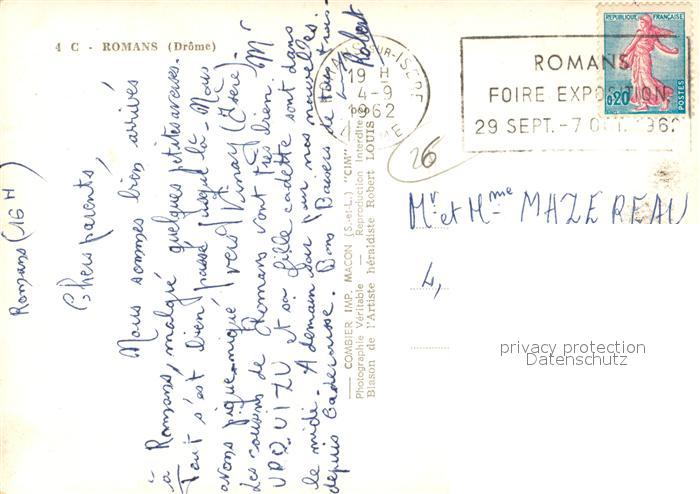 4 C - ROMANS (Drôme)
Romans (16 H)
Chers parents,
Nous sommes bien arrivés
à Romans, malgré quelques petites averses.
Tout s'est bien passé jusque là - Nous
avons pique-niqué vers Vinay (Isère)
Les cousins de Romans vont très bien. Mr
URQUIZU et sa fille cadette sont dans
le midi. A demain soir pour nos nouvelles
depuis Caderousse. Bons Baisers de tous trois
Robert
COMBIER IMP. MACON (S.-et-L.) "CIM"
Photographie Véritable — Reproduction Interdite
Blason de l'Artiste héraldiste Robert LOUIS
ROMANS-SUR-ISERE
19 H
4-9
1962
DROME
ROMANS
FOIRE EXPOSITION
29 SEPT. - 7 OCT. 1962
REPUBLIQUE FRANÇAISE
0,20
POSTES
26
Mr et Mme MAZEREAU
4,
privacy protection
Datenschutz